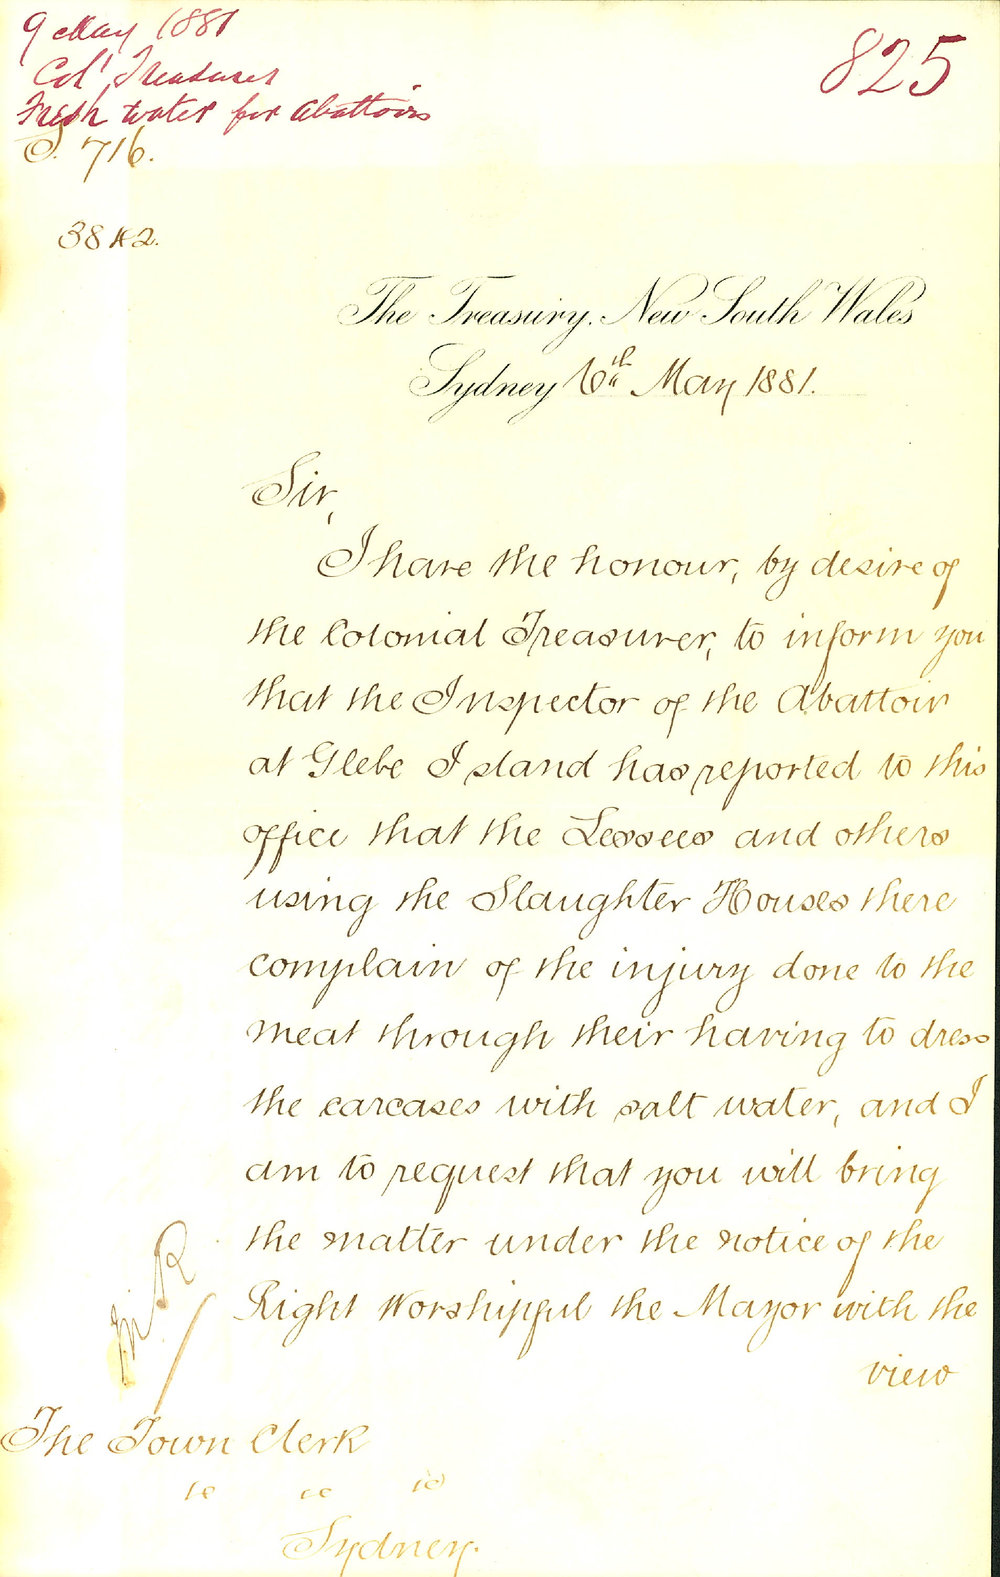 9 May 1881
Col' Treasurer
Fresh water for Abattoirs
825
S. 716.
The Treasury, New South Wales
Sydney 6th May 1881.
Sir,
I have the honour, by desire of
the Colonial Treasurer, to inform you
that the Inspector of the Abattoir
at Glebe Island has reported to this
office that the Lessees and others
using the Slaughter Houses there
complain of the injury done to the
meat through their having to dress
the carcases with salt water, and I
am to request that you will bring
the matter under the notice of the
Right Worshipful the Mayor with the
view
The Town Clerk
Sydney.